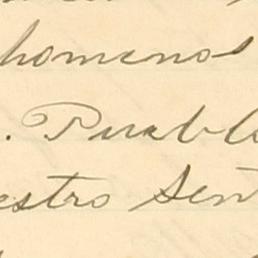 homenos
. Puebl
estro Señ